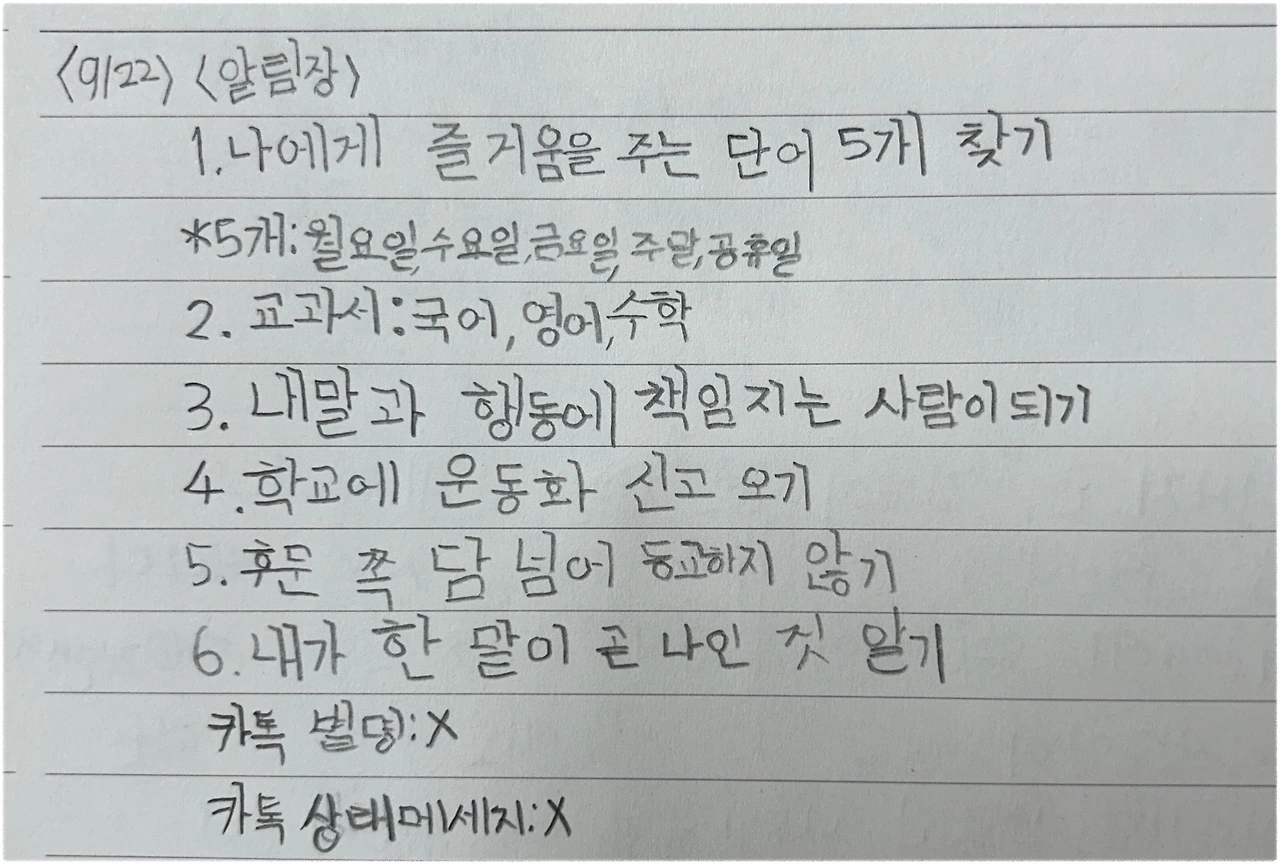 <9/22> <알림장>
1. 나에게 즐거움을 주는 단어 5개 찾기
*5개: 월요일, 수요일, 금요일, 주말, 공휴일
2. 교과서: 국어, 영어, 수학
3. 내말과 행동에 책임지는 사람이되기
4. 학교에 운동화 신고 오기
5. 후문 쪽 담 넘어 등교하지 않기
6. 내가 한 말이 곧 나인 것 알기
카톡 별명: X
카톡 상태메세지: X